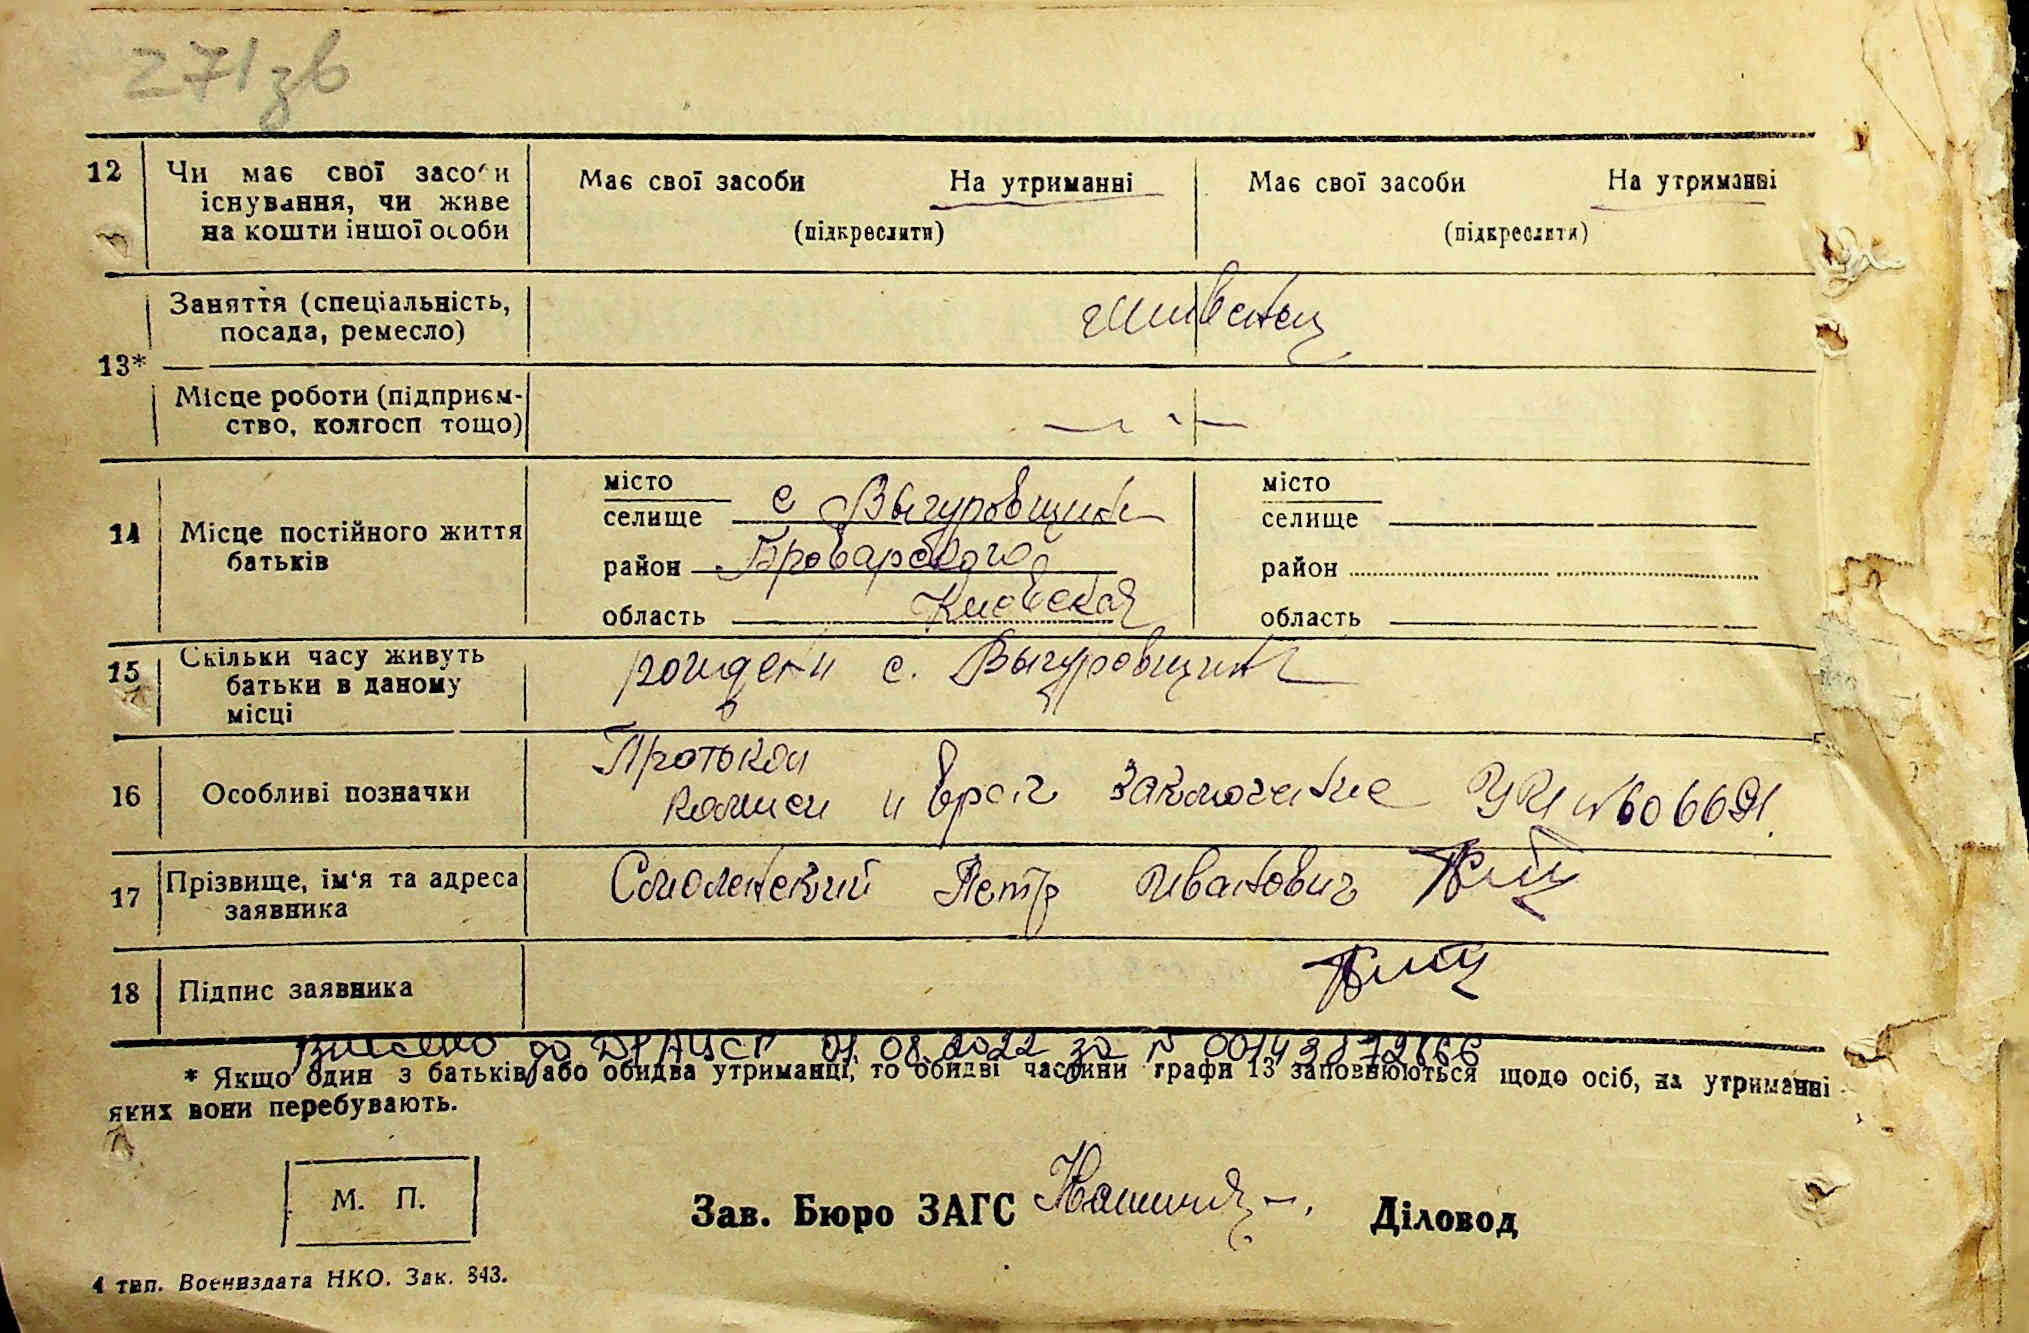 271зв
12 Чи має свої засоби Має свої засоби На утриманні Має свої засоби На утриманні
існування, чи живе
на кошти іншої особи (підкреслити) (підкреслити)
Заняття (спеціальність, иждивенец
посада, ремесло)
13*
Місце роботи (підприєм-
ство, колгосп тощо) — " —
місто місто
селище с Выгуровщина селище
14 Місце постійного життя
батьків
район Броварского район
область Киевская область
15 Скільки часу живуть рождени с. Выгуровщина
батьки в даному
місці
Протокол
16 Особливі позначки комисии и врач заключение
17 Прізвище, ім'я та адреса Смоленский Петр Иванович
заявника
18 Підпис заявника
внесено до ДРАЦСГ 01.08.2022 за N 00143872866
* Якщо один з батьків або обидва утриманці, то обидві частини графи 13 заповнюються щодо осіб, на утриманні
яких вони перебувають.
М. П.
Зав. Бюро ЗАГС Діловод
4 тип. Воениздата НКО. Зак. 843.